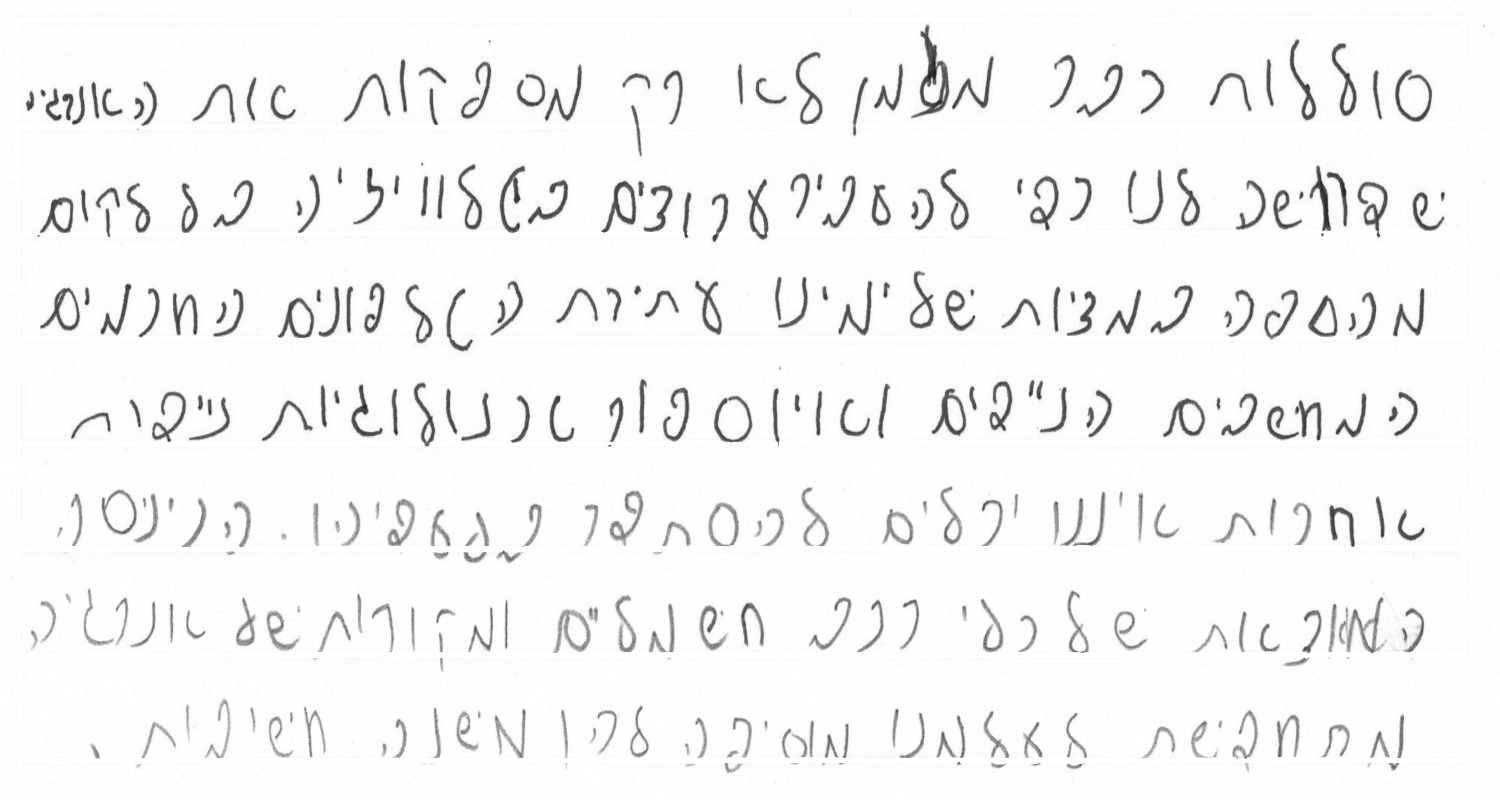 סוללות כבר מזמן לא רק מספקות את האנרגיה
שדרושה לנו כדי להעביר ערוצים בטלוויזיה בלי לקום
מהספה במציאות של ימינו עתירת הטלפונים החכמים
המחשבים הניידים ואויןספור טכנולוגיות ניידות
אחרות איננו יכלים להסתדר בלעדיהן. הכניסה
של כלי רכב חשמליים ומקורות של אנרגיה
מתחדשת לעולמנו מוסיפה להן משנה חשיבות.